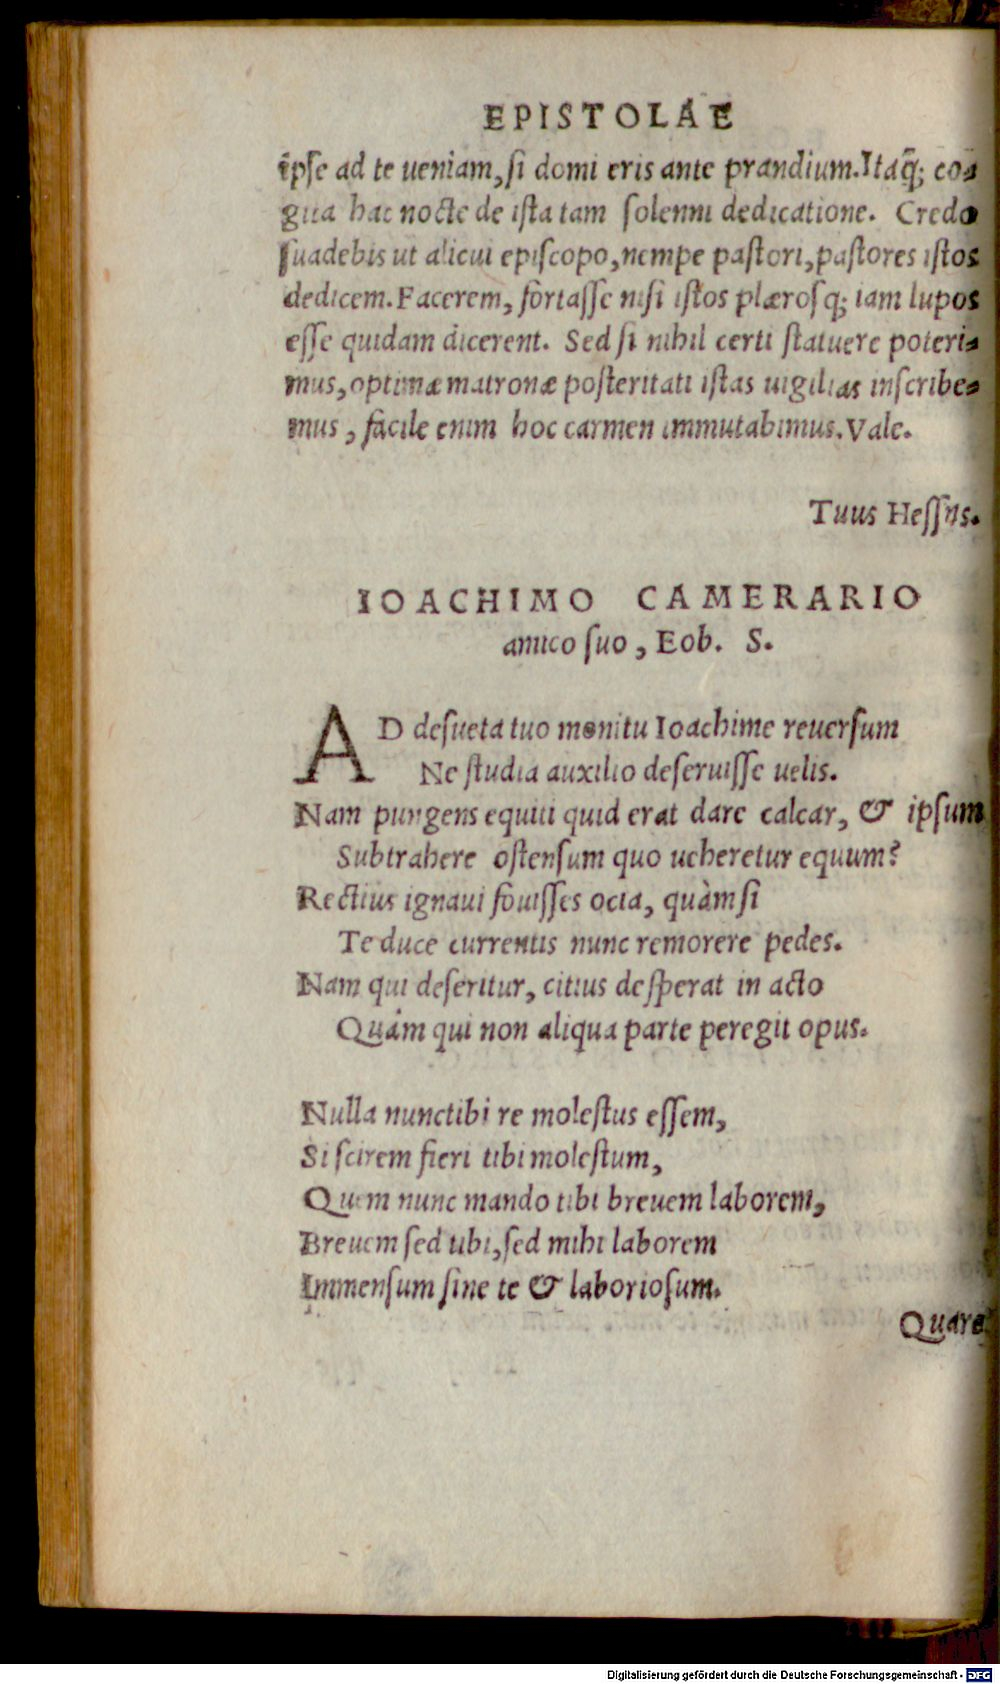 EPISTOLAE
ipſe ad te ueniam, ſi domi eris ante prandium. Itaq̃; co⸗
gita hac nocte de iſta tam ſolenni dedicatione. Credo
ſuadebis ut alicui epiſcopo, nempe paſtori, paſtores iſtos
dedicem. Facerem, fortaſſe niſi iſtos plæroſq; iam lupos
eſſe quidam dicerent. Sed ſi nihil certi ſtatuere poteri⸗
mus, optimæ matronæ poſteritati iſtas uigilias inſcribe⸗
mus, facile enim hoc carmen immutabimus. Vale.
Tuus Heſſus.
IOACHIMO CAMERARIO
amico ſuo, Eob. S.
AD deſueta tuo monitu Ioachime reuerſum
Ne ſtudia auxilio deſeruiſſe uelis.
Nam pungens equiti quid erat dare calcar, & ipſum
Subtrahere oſtenſum quo ueheretur equum?
Rectius ignaui fouiſſes ocia, quàm ſi
Te duce currentis nunc remorere pedes.
Nam qui deſeritur, citius deſperat in acto
Quàm qui non aliqua parte peregit opus.
Nulla nunc tibi re moleſtus eſſem,
Si ſcirem fieri tibi moleſtum,
Quem nunc mando tibi breuem laborem,
Breuem ſed tibi, ſed mihi laborem
Immenſum ſine te & laborioſum.
Quare
Digitalisierung gefördert durch die Deutsche Forschungsgemeinschaft - DFG